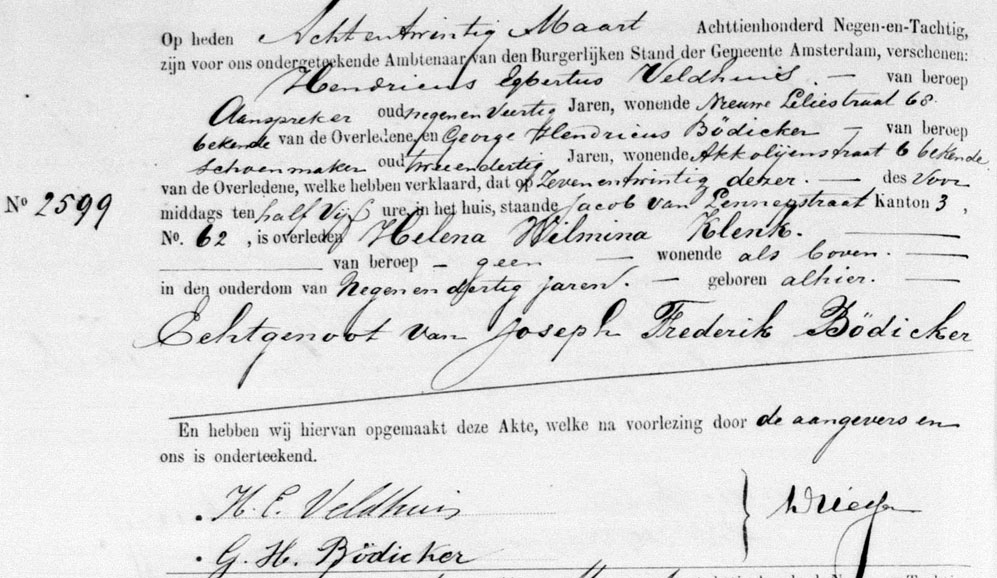 Op heden Achtentwintig Maart Achttienhonderd Negen-en-Tachtig,
zijn voor ons ondergeteekende Ambtenaar van den Burgerlijken Stand der Gemeente Amsterdam, verschenen:
Hendricus Egbertus Veldhuis. — van beroep
Aanspreker oud negenenveertig Jaren, wonende Nieuwe Leliestraat 68.
bekende van de Overledene, en George Hendricus Bödicker — van beroep
Schoenmaker oud tweeendertig Jaren, wonende Akkolijenstraat 6 bekende
van de Overledene, welke hebben verklaard, dat op Zevenentwintig dezer. — des Voor
No 2599
middags ten half Vijf ure, in het huis, staande Jacob van Lennepstraat Kanton 3,
No. 62, is overleden Helena Wilmina Klenk. —
— van beroep — geen — wonende als boven. —
in den ouderdom van Negenendertig jaren. — geboren alhier. —
Echtgenoot van Joseph Frederik Bödicker
En hebben wij hiervan opgemaakt deze Akte, welke na voorlezing door de aangevers en
ons is onderteekend.
H. E. Veldhuis
G. H. Bödicker